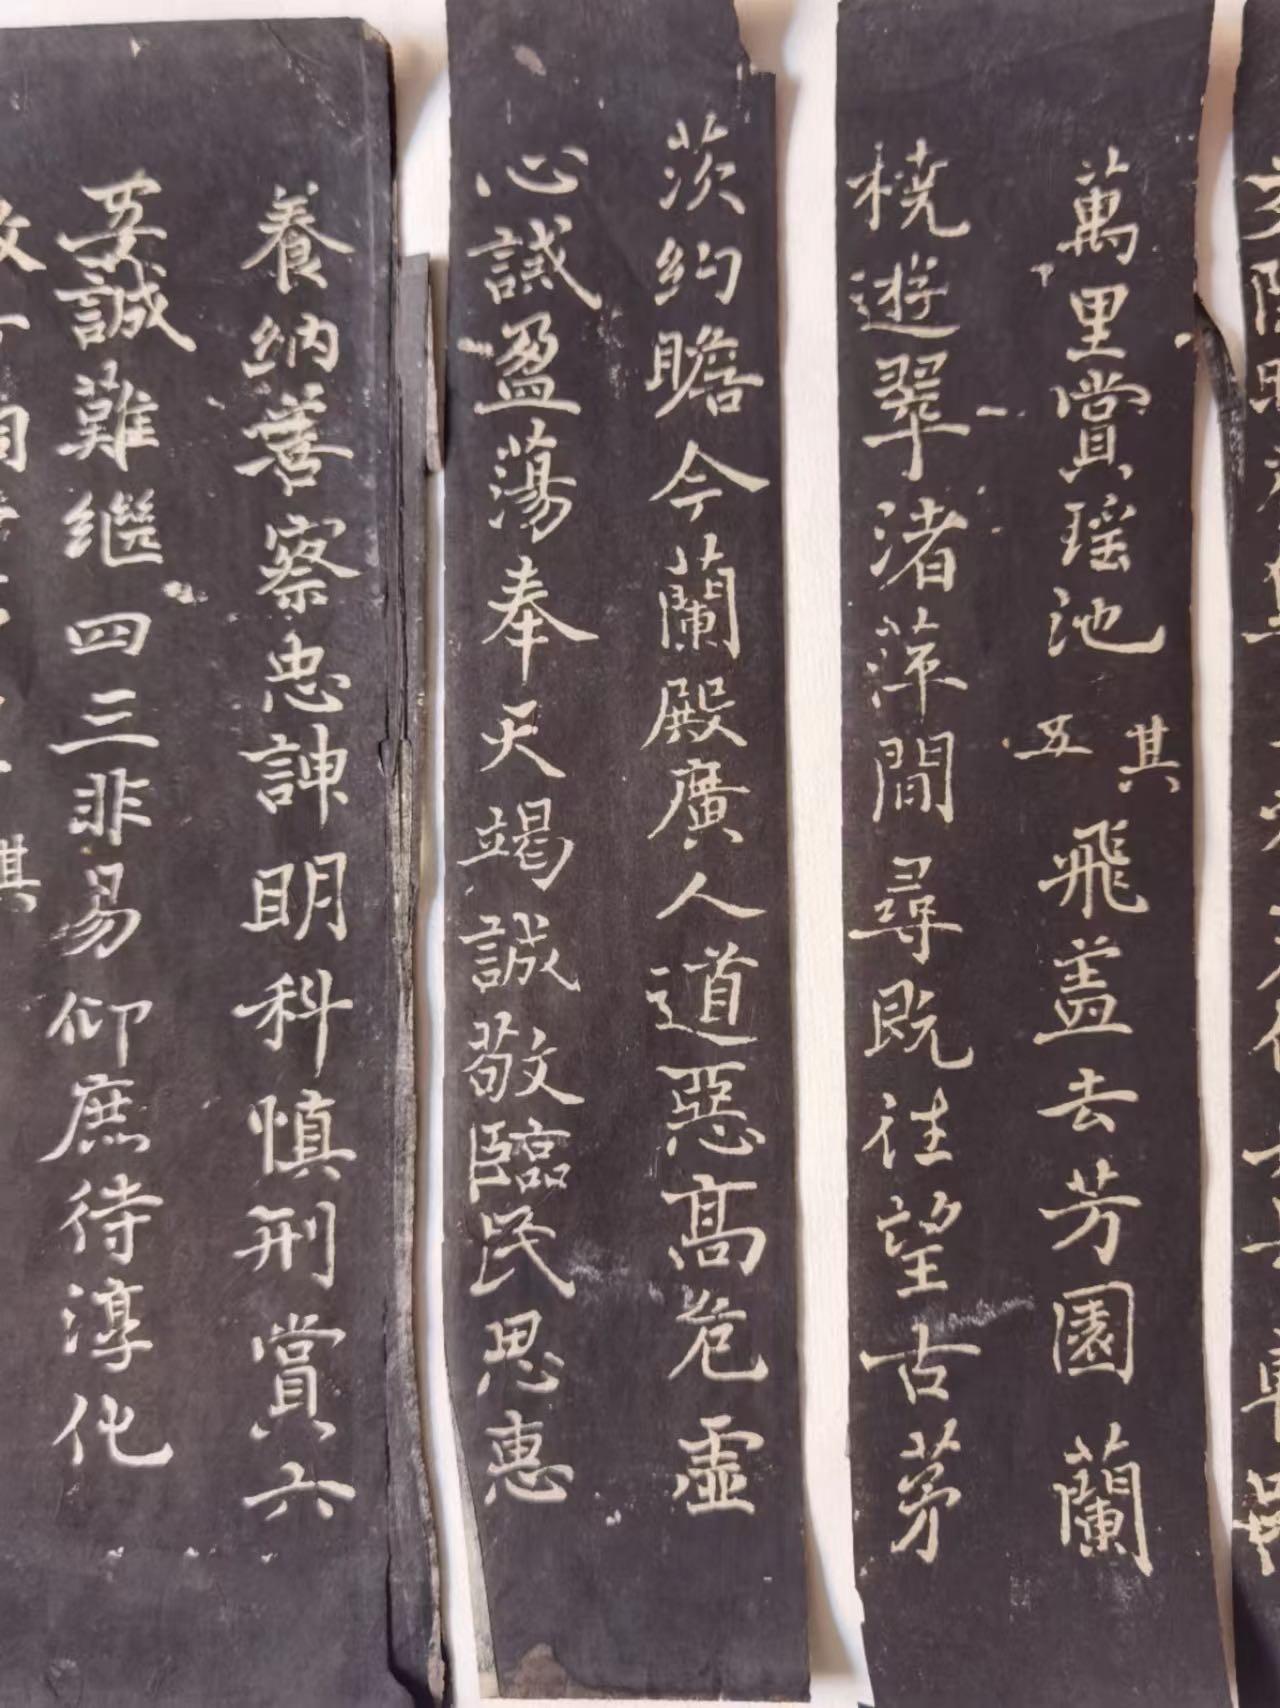 萬里賞瑤池 其五 飛盖去芳園蘭
橈遊翠渚萍間尋既往望古茅
茨約瞻今蘭殿廣人道惡高危虛
心誡盈蕩奉天竭誠敬臨民思惠
養納善察忠訷明科慎刑賞六
五誠難繼四三非易仰庶待淳化